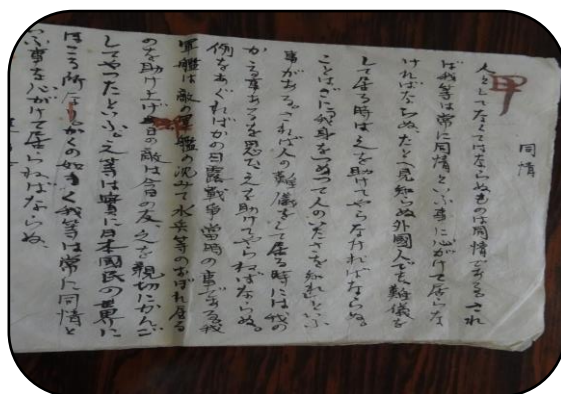 同情
甲
人としてなくてはならぬものは同情である。され
ば我等は常に同情といふ事に心がけて居らな
ければならぬ。たとへ見知らぬ外國人でも難儀を
して居る時は之を助けてやらなければならぬ。
ことはざに我身をつめつて人のいたさを知れといふ
事がある。されば人の難儀をして居る時には我の
かゝる事あるを思ひ之を助けてやらねばならぬ。
例をあぐればかの日露戰爭當時の事である我
軍艦は敵の軍艦の沈みて水兵等のおぼれ居る
のを助け上げ昨日の敵は今日の友、之を親切にかんご
してやつたといふ。之等は實に日本國民の世界に
ほこる所なりかくの如く我等は常に同情と
いふ事を心がけて居らねばならぬ。